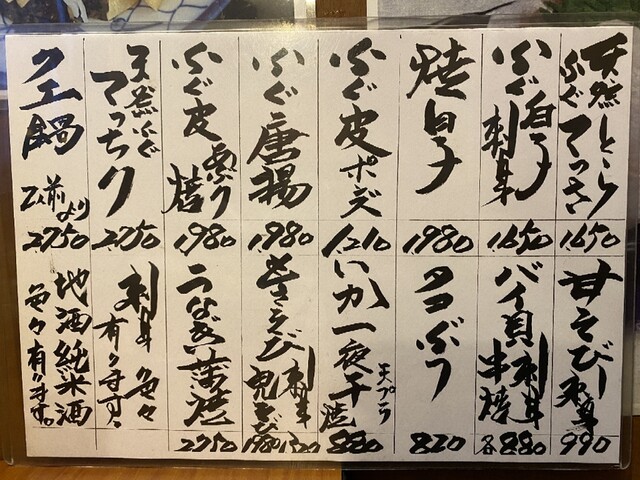 天然とらふぐてっさ
1,650
ふぐ白子刺身
1,650
焼白子
1,980
ふぐ皮ポン酢
1,210
ふぐ唐揚
1,980
ふぐ皮
1,980
天然ふぐてっちり
2,750
クエ鍋
2人前より
2,750
甘えび刺身
990
バイ貝 刺身 串焼
各880
タコぶつ
820
いか一夜干 天プラ 焼
880
刺身
1980
うなぎ
2750
刺身 色々有ります。
地酒純米酒色々有ります。